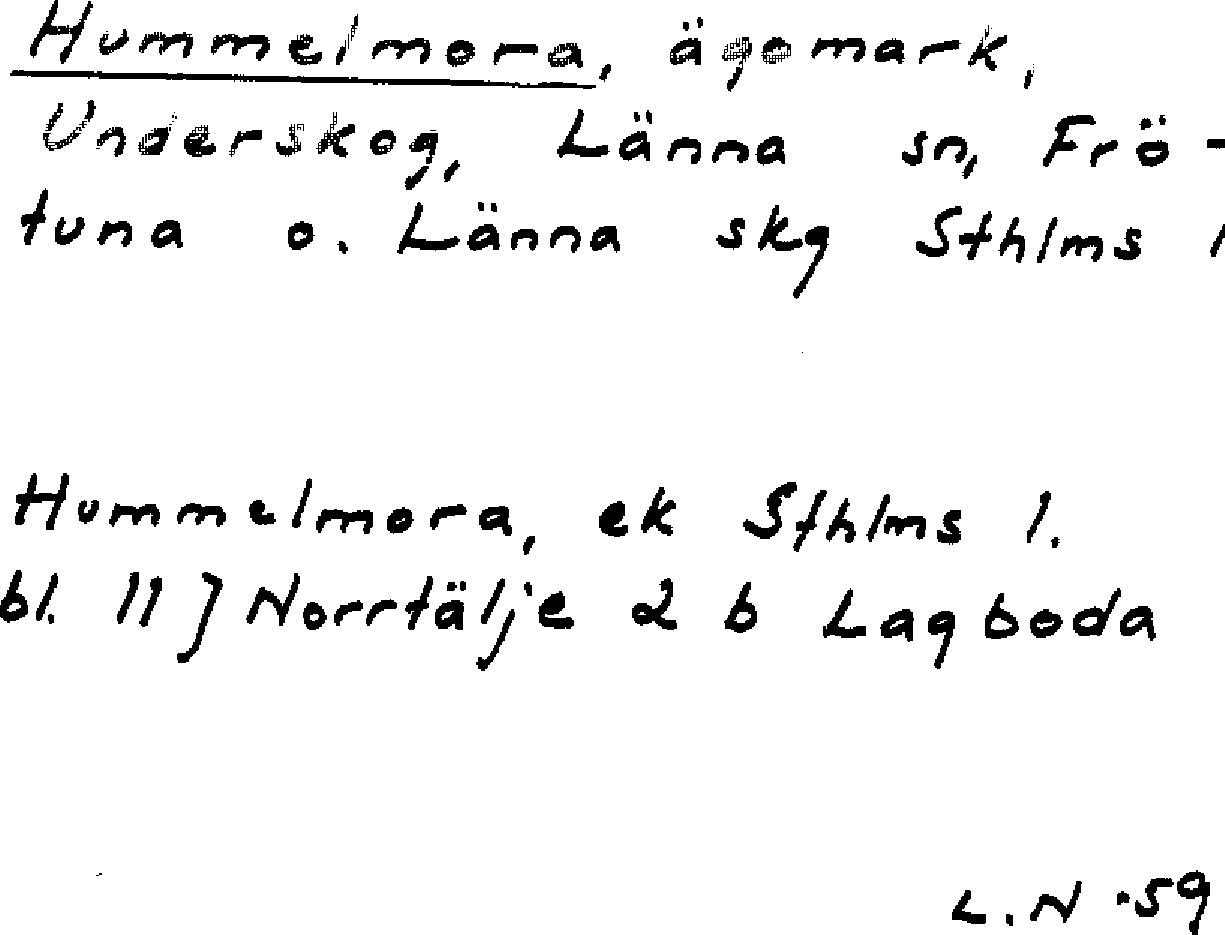 Hummelmora, ägomark,
Underskog, Länna sn, Frö-
tuna o. Länna skg Sthlms l
Hummelmora, ek Sthlms l.
bl. 11 J Norrtälje 2 b Lagboda
L.N -59